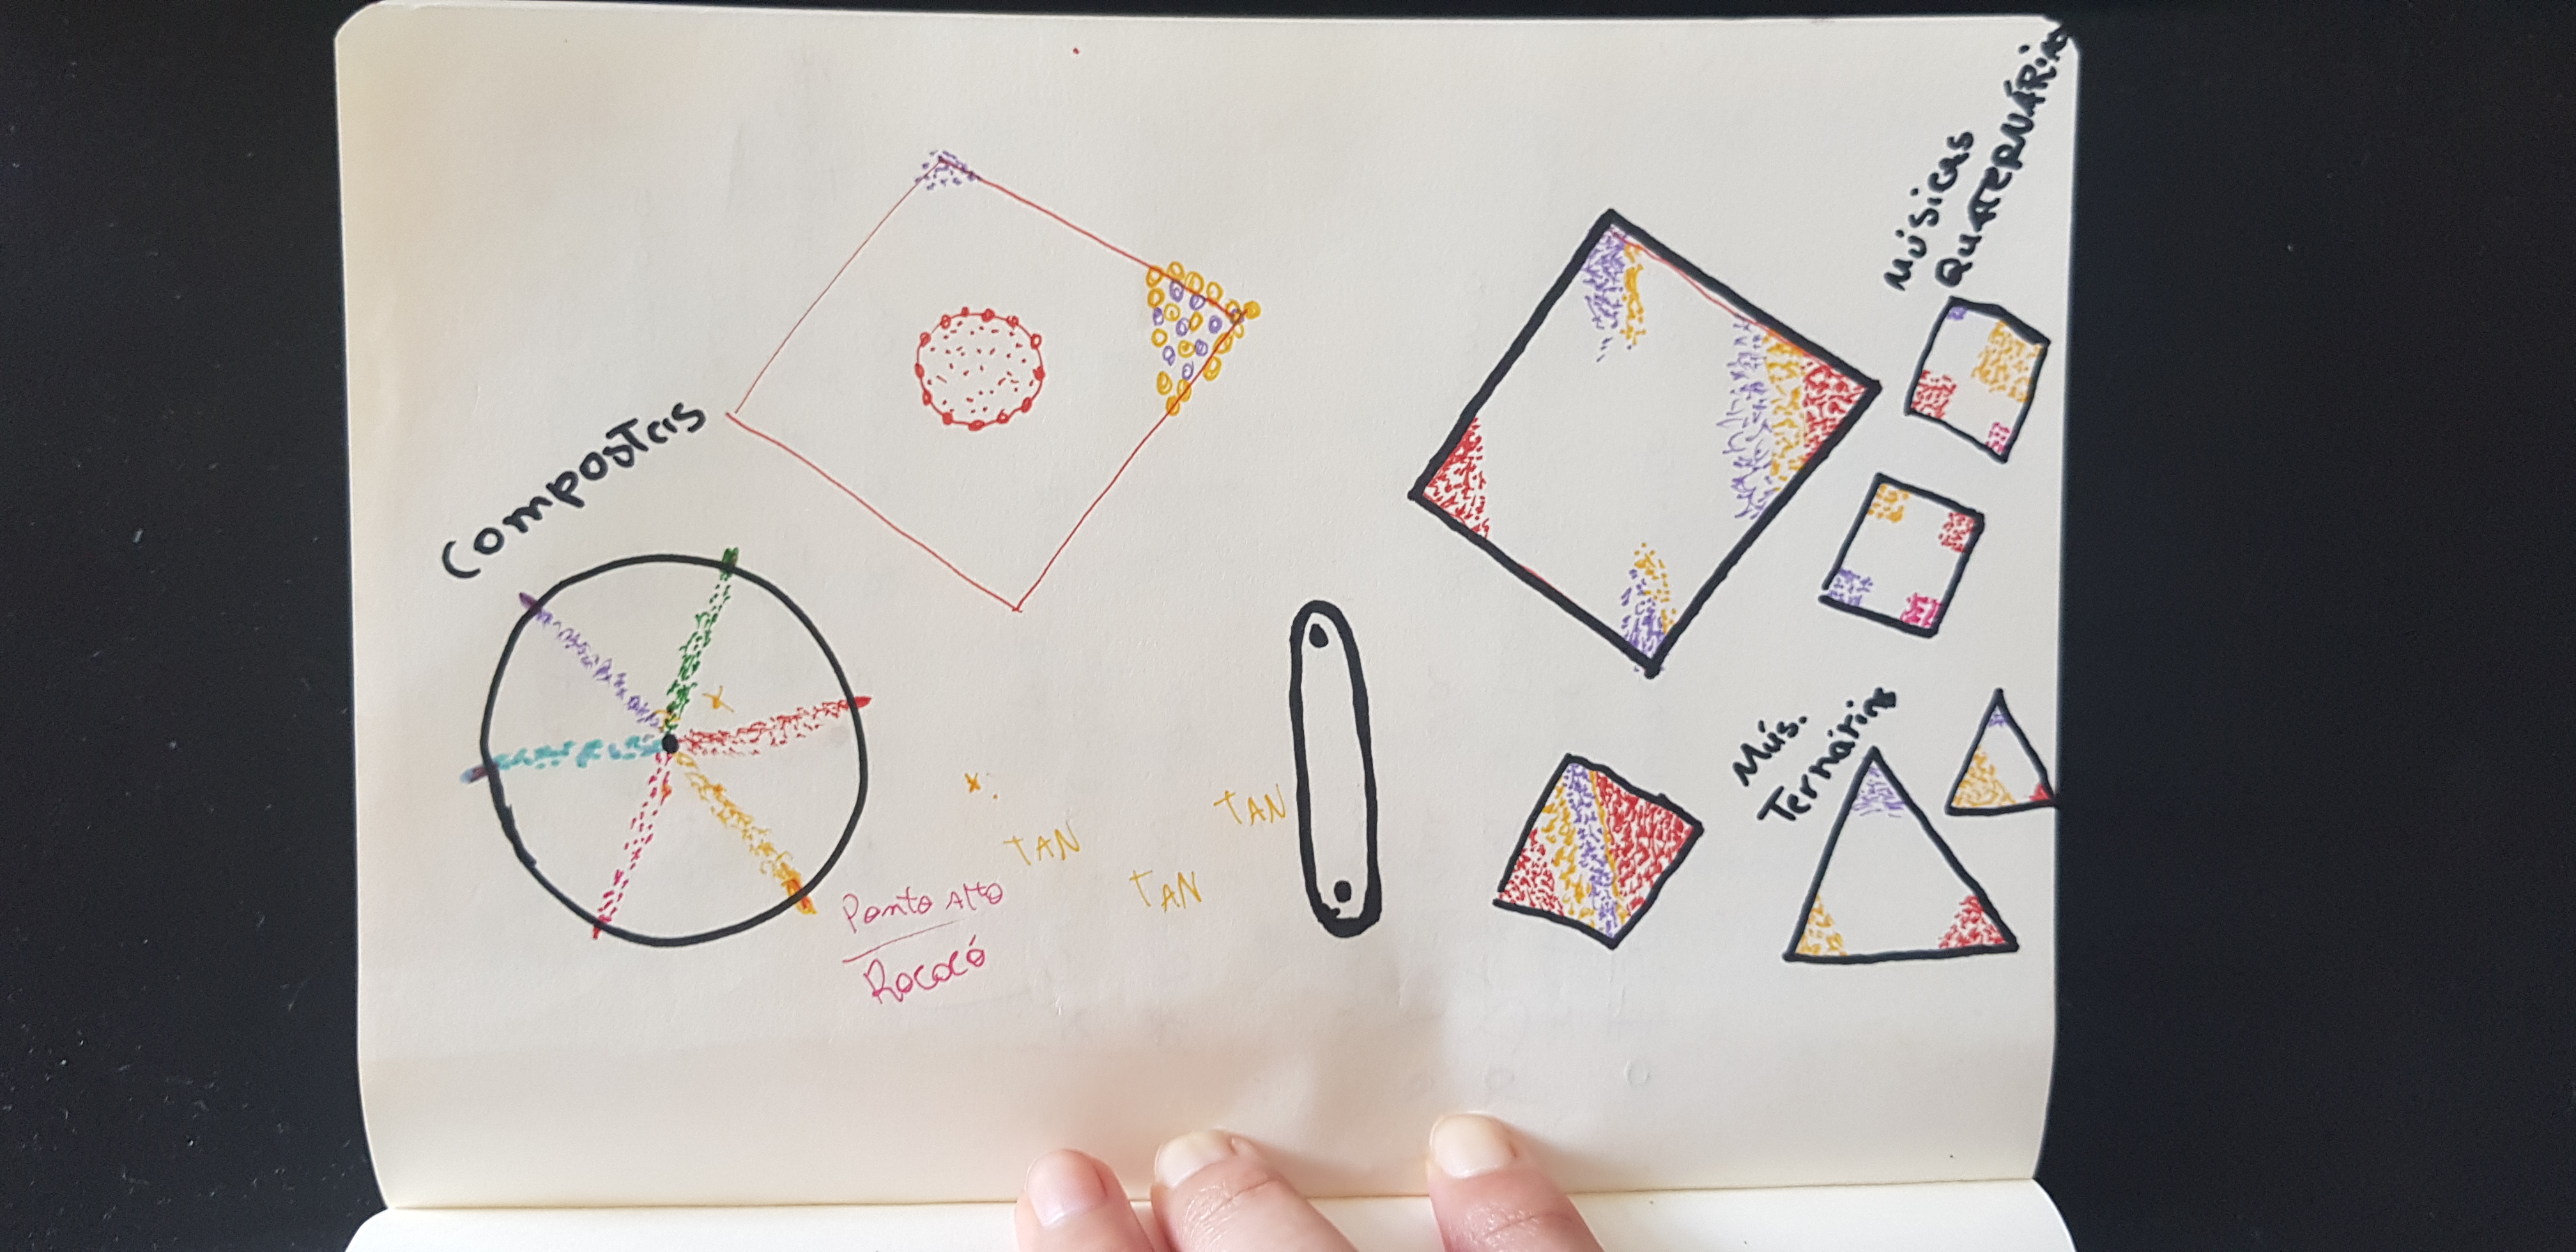 Compostas
Ponto Alto
Rococó
TAN
TAN
TAN
Mús.
Ternárias
Músicas
QUATERNÁRIAS